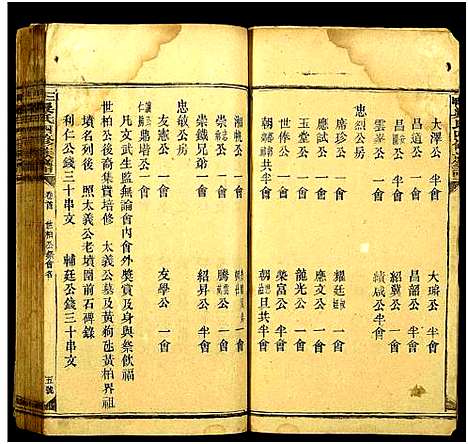 大澤公 半會
大璘公 一會
昌道公 一會
昌韶公 半會
昌文公 半會
紹冀公 半會
雲峯公 一會
績咸公 一會
忠烈公房
席珍公 一會
應試公 一會
應文公 一會
龍光公 一會
世俸公 一會
榮富公 一會
朝 公 共半會
朝 旦共半會
湘帆公 一會
崇 公 一會
騰 公 一會
崇鐵兄弟 一會
紹昇公 半會
忠敏公房
友憲公 一會
友學公 一會
仁 公 一會
凡文武生監無論會內會外奬賞及身與祭飲福
世柏公後裔集費培修 太義公墓及黃狗虵黃柏界祖
墳名列後 照太義公老墳圍前石碑錄
利仁公錢三十串文 輔廷公錢三十串文
卷首 世柏公祭會名
五號